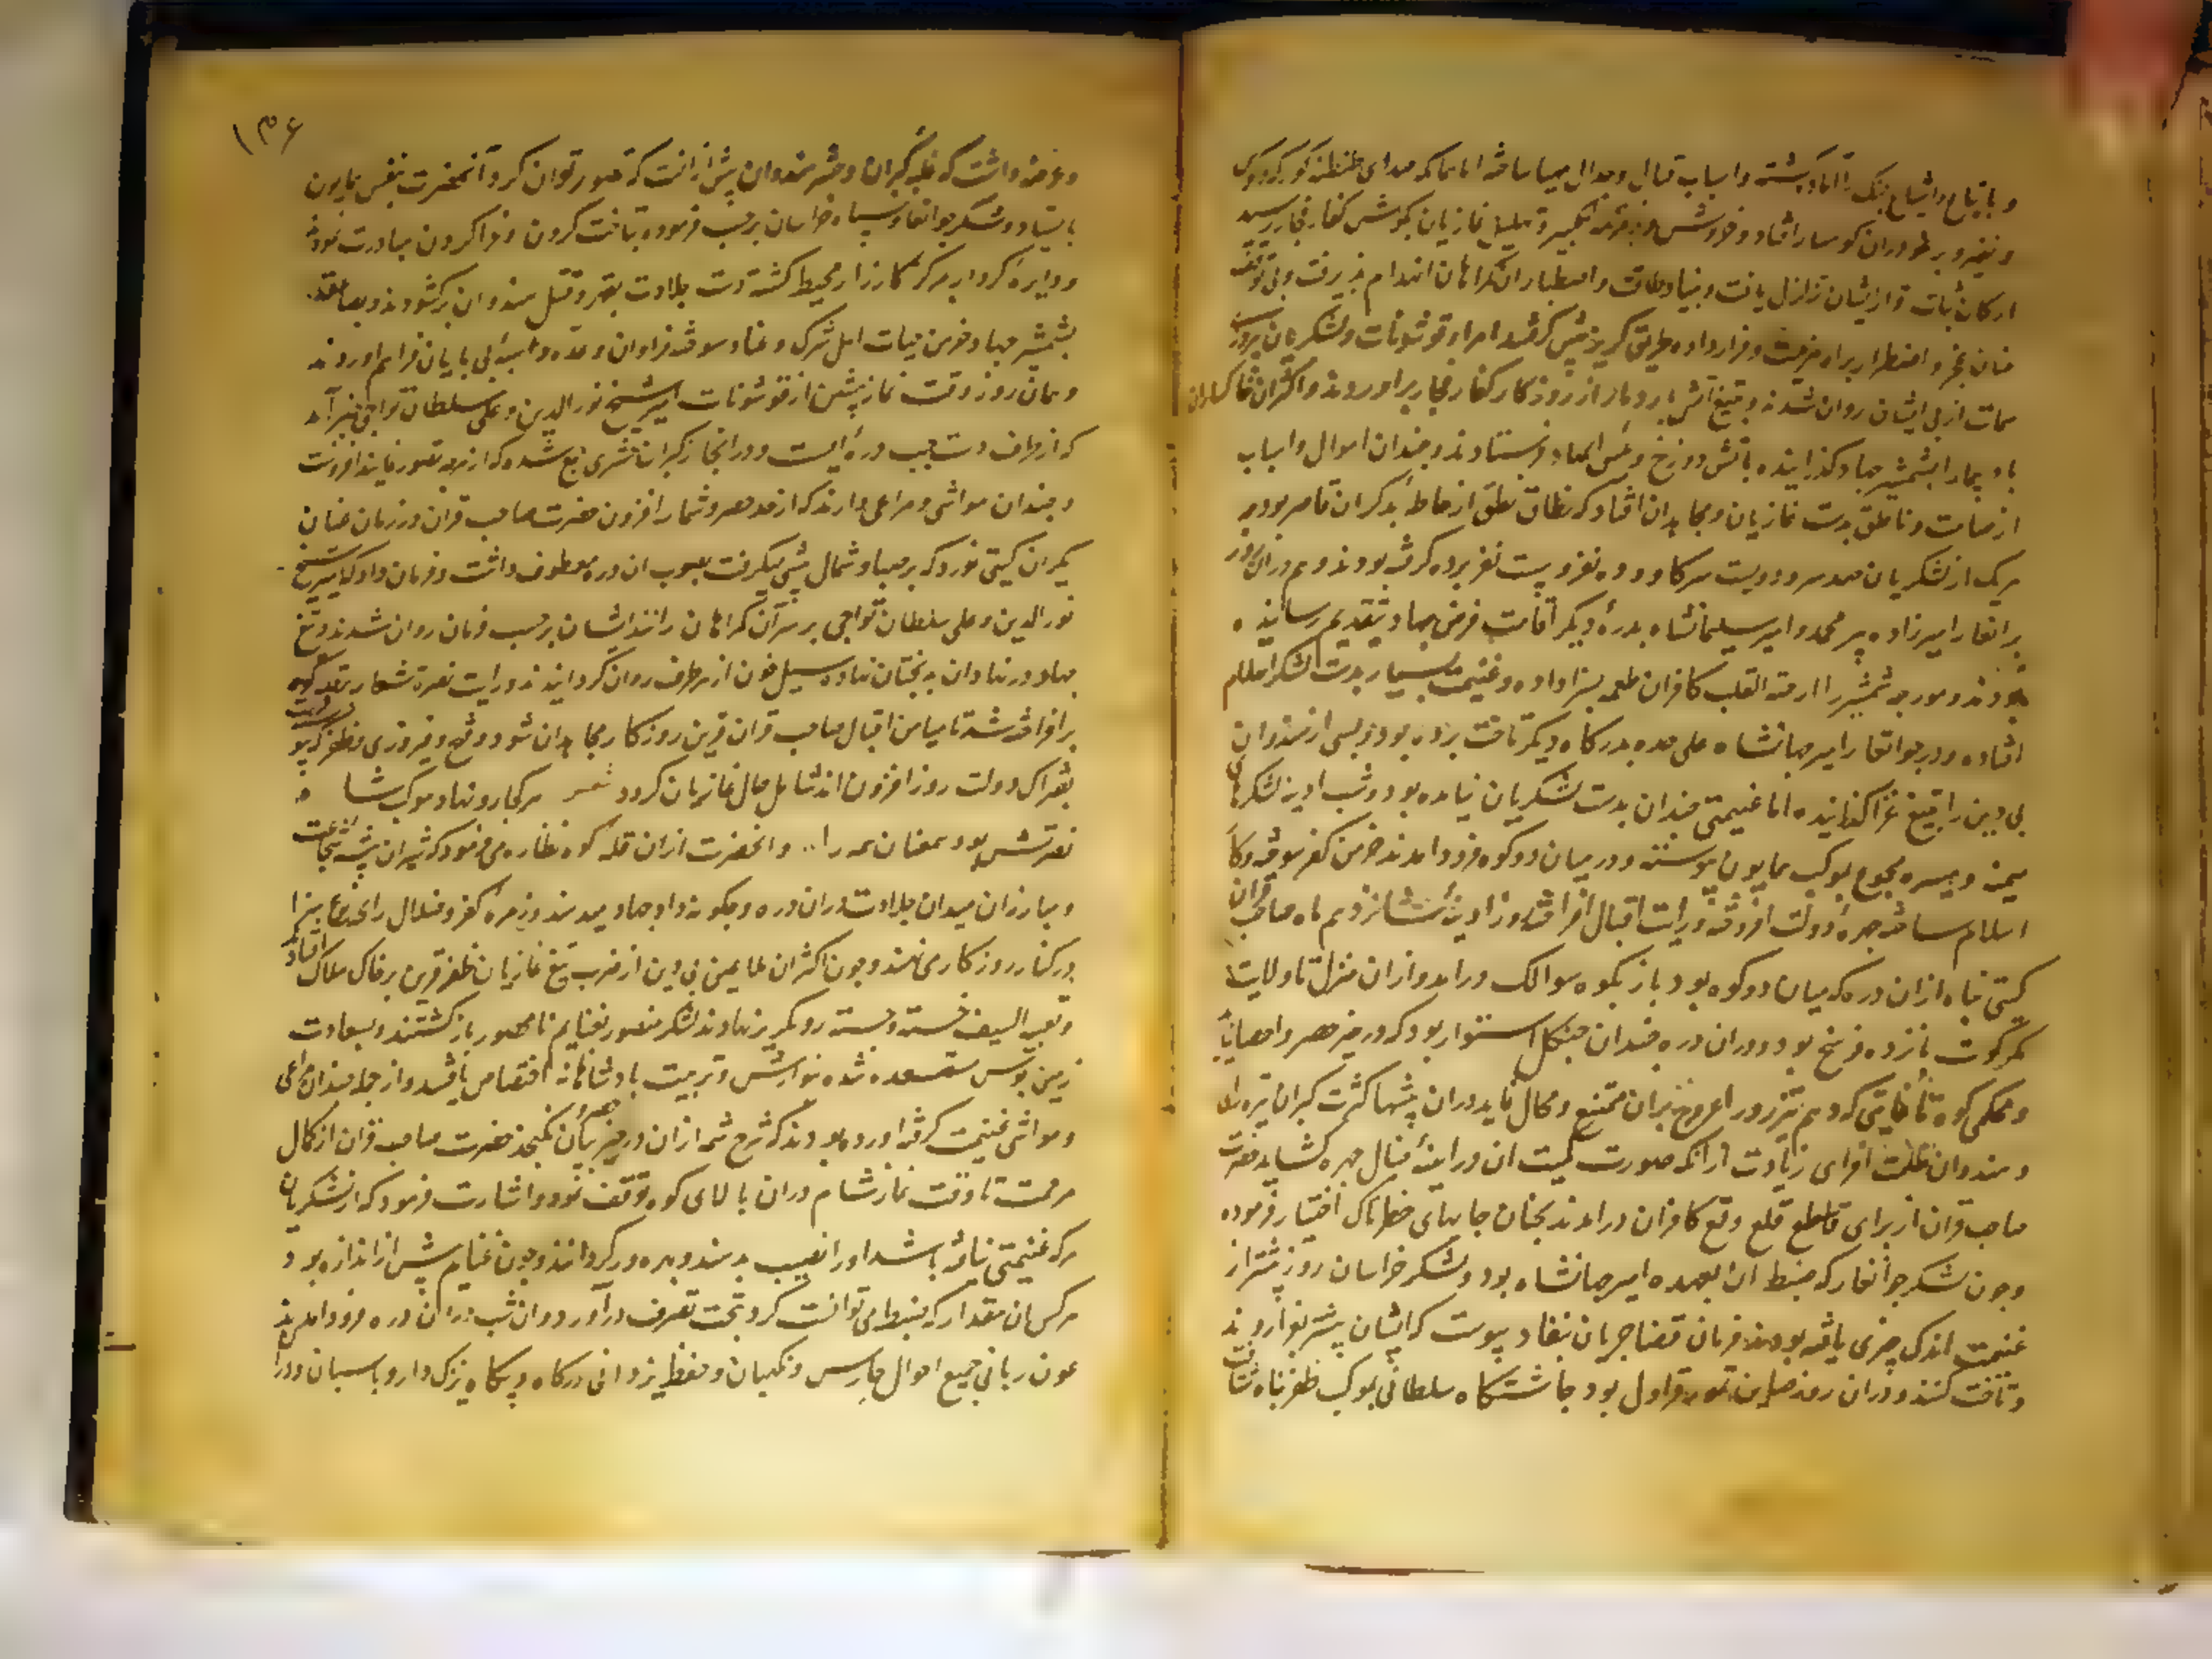 و باتباع و اشیاع جنگ را آماده گشته و اسباب قتال و جدال مهیا ساخته اما بماکه صدای طنطنه کورکه و کوس
و نفیر و برغو دران کوهسار افتاد و خروش و تکبیر و تهلیل غازیان بگوش کفار فجار رسید
ارکان ثبات و قرار ایشان تزلزل یافت و بنیاد طاقت و اصطبار ان گمراهان انهدام پذیرفت و بی توقف
عنان عجز و اضطرار براه هزیمت و فرار داده طریق گریز پیش گرفتند امرا و قوشونات و لشکریان نیروز
سمات از پی ایشان روان شدند و بتیغ آتش بار دمار از روزگار کفار فجار براوردند و اکثران خاکساران
باد پیما را بشمشیر جهاد گذرانیده باتش دوزخ و بئس المهاد فرستادند و چندان اموال و اسباب
از صامت و ناطق بدست غازیان و مجاهدان افتاد که نطاق نطق از احاطه بذکر ان قاصر بود
هریک از لشکریان صد سر و دویست سر گاو و ده نفر و بیست نفر برده گرفته بودند و هم دران روز
برانغار امیرزاده پیر محمد و امیر سلیمانشاه بدره دیگر اقامت فرض جهاد بتقدیم رسانیده
بودند و مورچه شمشیر را از حبة القلب کافران طعمه بسزا داده و غنیمت بسیار بدست لشکر اسلام
افتاده و در جوانغار امیر جهانشاه علی حده بدرگاه دیگر تاخت برده بود و بسی از هندوان
بی دین را بتیغ غزا گذرانیده اما غنیمتی چندان بدست لشکریان نیامده بود و شب ادینه لشکرهای
میمنه و میسره مجموع بموکب همایون پیوسته و در میان دو کوه فرود امدند خرمن کفر سوخته و کار
اسلام ساخته چهره دولت افروخته و رایت اقبال افراخته روز ادینه شانزدهم ماه صاحب قران
گیتی پناه ازان دره که میان دو کوه بود باز بکوه سوالک درامد و ازان منزل تا ولایت
نمرکوت پانزده فرسخ بود و دران دره چندان جنگل استوار بود که در حیز حصر و احصا نیاید
و محکمی کوه تا غایتی که وهم تیزرو را عروج بران ممتنع و محال نماید دران پشتها کثرت گبران تیره رای
و هندوان ظلمت افزای زیادت ازانکه صورت کمیت ان در اینه خیال چهره گشاید حضرت
صاحب قران از برای قاطع قلع و قمع کافران درامدند بچنان جایهای خطرناک اختیار فرموده
و چون لشکر جوانغار که ضبط ان بعهده امیر جهانشاه بود و لشکر خراسان روز پیشتر از
غنیمت اندک چیزی یافته بودند فرمان قضا جریان بنفاد پیوست که ایشان پیشتر بغزا روند
و تاخت کنند و دران روز صاین تمور قراول بود چاشتگاه سلطانی بموکب ظفر پناه شتافت
۱۳۶
و عرضه داشت که غلبه گبران و حشر هندوان بیش از انست که تصور توان کرد آنحضرت بنفس همایون
بایستاد و لشکر جوانغار و سپاه خراسان برحسب فرموده بتاخت کردن و غزا کردن مبادرت نمودند
و دایره کردار بر مرکز کارزار محیط گشته دست جلادت بقهر و قتل هندوان برگشودند و بصاعقه
شمشیر جهاد خرمن حیات اهل شرک و عناد سوخته فراوان و عده و اسبه بی پایان فراهم اوردند
و همان روز وقت نماز پیشین از قوشونات امیر شیخ نور الدین و علی سلطان تواجی خبر آمد
که از طرف دست چپ دره ایست و درانجا از گبران لشکری جمع شده که از هرچه تصور نمایند افزونست
و چندان مواشی و مراعی دارند که از حد حصر و شمار افزون حضرت صاحب قران در زمان عنان
یکران گیتی نورد که بر صبا و شمال پیشی میگرفت بصوب ان دره معطوف داشت و فرمان داد که امیر شیخ
نور الدین و علی سلطان تواجی بر سر آن گمراهان رانند ایشان برحسب فرمان روان شدند و تیغ
جهاد در نهادان بدبختان نهاده سیل خون از هر طرف روان گردانیدند و رایت نصرت شعار بقله کوه
برافراخته شد تا میامن اقبال صاحب قران قرین روزگار مجاهدان شود و فتح و فیروزی و ظفر که پیوسته
بفتراک دولت روز افزون اند شامل حال غازیان گردد شعر هر کجا رو نهاد موکب شاه
نصرتش بود همعنان همه را .. و انحضرت ازان قله کوه نظاره می فرمود که شیران بیشه شجاعت
و مبارزان میدان جلادت دران دره و چگونه داد جهاد میدهند و زمره کفر و ضلال را چه نوع سزا
در کنار روزگار می نهند و چون اکثران ملاعین بی دین از ضرب تیغ غازیان ظفر قرین بر خاک هلاک افتاد
و بقیة السیف خسته و بسته رو بگریز نهادند لشکر منصور بغنایم نامحصور بازگشتند و بسعادت
زمین بوس مستسعد شده نوازش و تربیت پادشاهانه اختصاص یافتند و از جمله چندان مراعی
و مواشی غنیمت گرفته اورده بودند که شرح شمه ازان در حیز بیان نگنجد حضرت صاحب قران از کمال
مرحمت تا وقت نماز شام دران بالای کوه توقف نمود و اشارت فرمود که از لشکریان
هرکه غنیمتی نیافته باشد او را نصیب بدهند و بهره ور گردانند و چون غنایم بیش از اندازه بود
هر کس ان مقدار که ضبط می توانست کرد بتحت تصرف درآورد و ان شب دران دره فرود امدند
عون ربانی جمیع احوال حارس و نگهبان و حفظ یزدانی درگاه و بیگاه یزک دار و پاسبان و در